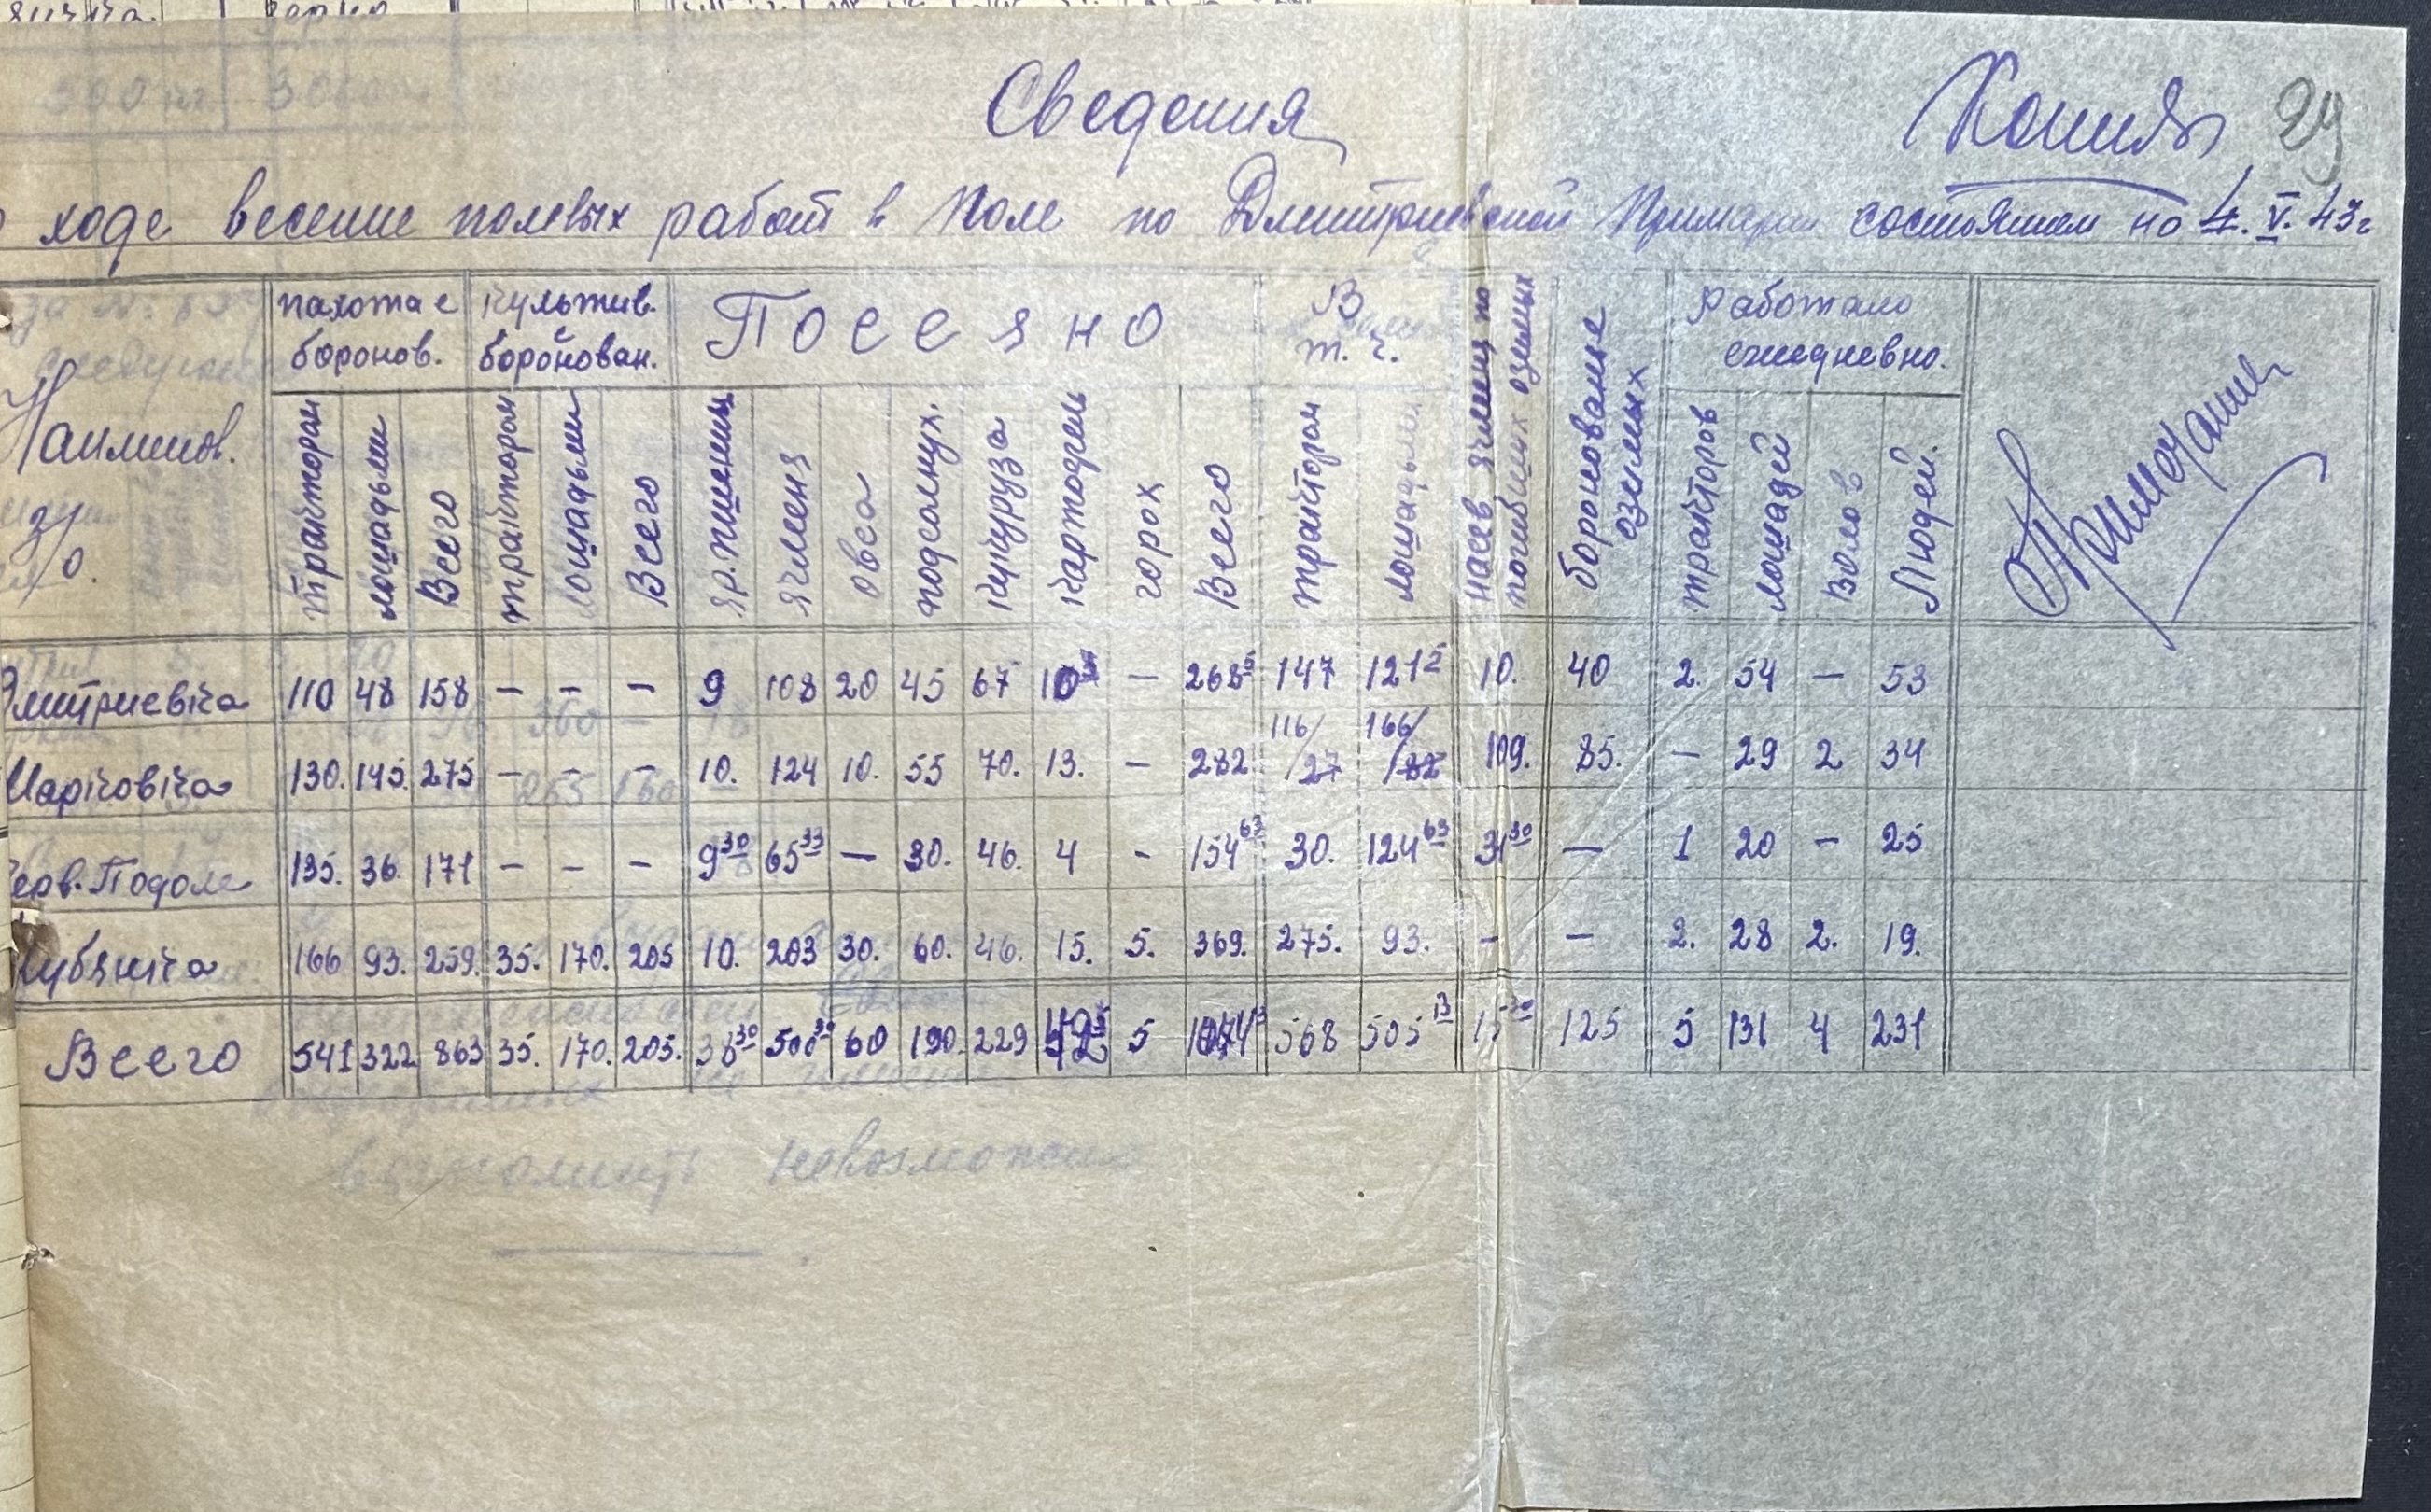 Сведения
Копия 29
ходе весенне полевых работ в поле по Дмитриевской Примарии состоянием на 4. V. 43г
пахота с боронов. | культив. с боронован. | Посеяно | В т. ч. | насев ячменя по погибших озимых | боронование озимых | Работало ежедневно. | Примечание
Наименов.
трактором | лошадьми | Всего | трактором | лошадьми | Всего | яр. пшеницы | ячменя | овса | подсолнух. | кукуруза | картофель | горох | Всего | трактором | лошадьми | тракторов | лошадей | Волов | Людей.
Дмитриевка | 110 | 48 | 158 | — | — | — | 9 | 108 | 20 | 45 | 67 | 10 | — | 268⁵ | 147 | 121⁵ | 10. | 40 | 2. | 54 | — | 53
116/ 166/
Марковка | 130. | 145. | 275 | — | — | — | 10. | 124 | 10. | 55 | 70. | 13. | — | 282 | /27 | /82 | 109. | 85. | — | 29 | 2 | 34
Черв. Подоле | 135. | 36. | 171 | — | — | — | 9³⁰ | 65³³ | — | 30. | 46. | 4 | - | 154⁶³ | 30. | 124⁶³ | 31³⁰ | — | 1 | 20 | — | 25
166 | 93. | 259. | 35. | 170. | 205 | 10. | 203 | 30. | 60. | 46. | 15. | 5. | 369. | 275. | 93. | - | — | 2. | 28 | 2. | 19.
Всего | 541 | 322 | 863 | 35. | 170. | 205. | 38³⁰ | 500³³ | 60 | 190. | 229 | 5 | 568 | 505¹³ | 125 | 5 | 131 | 4 | 231
невозможно